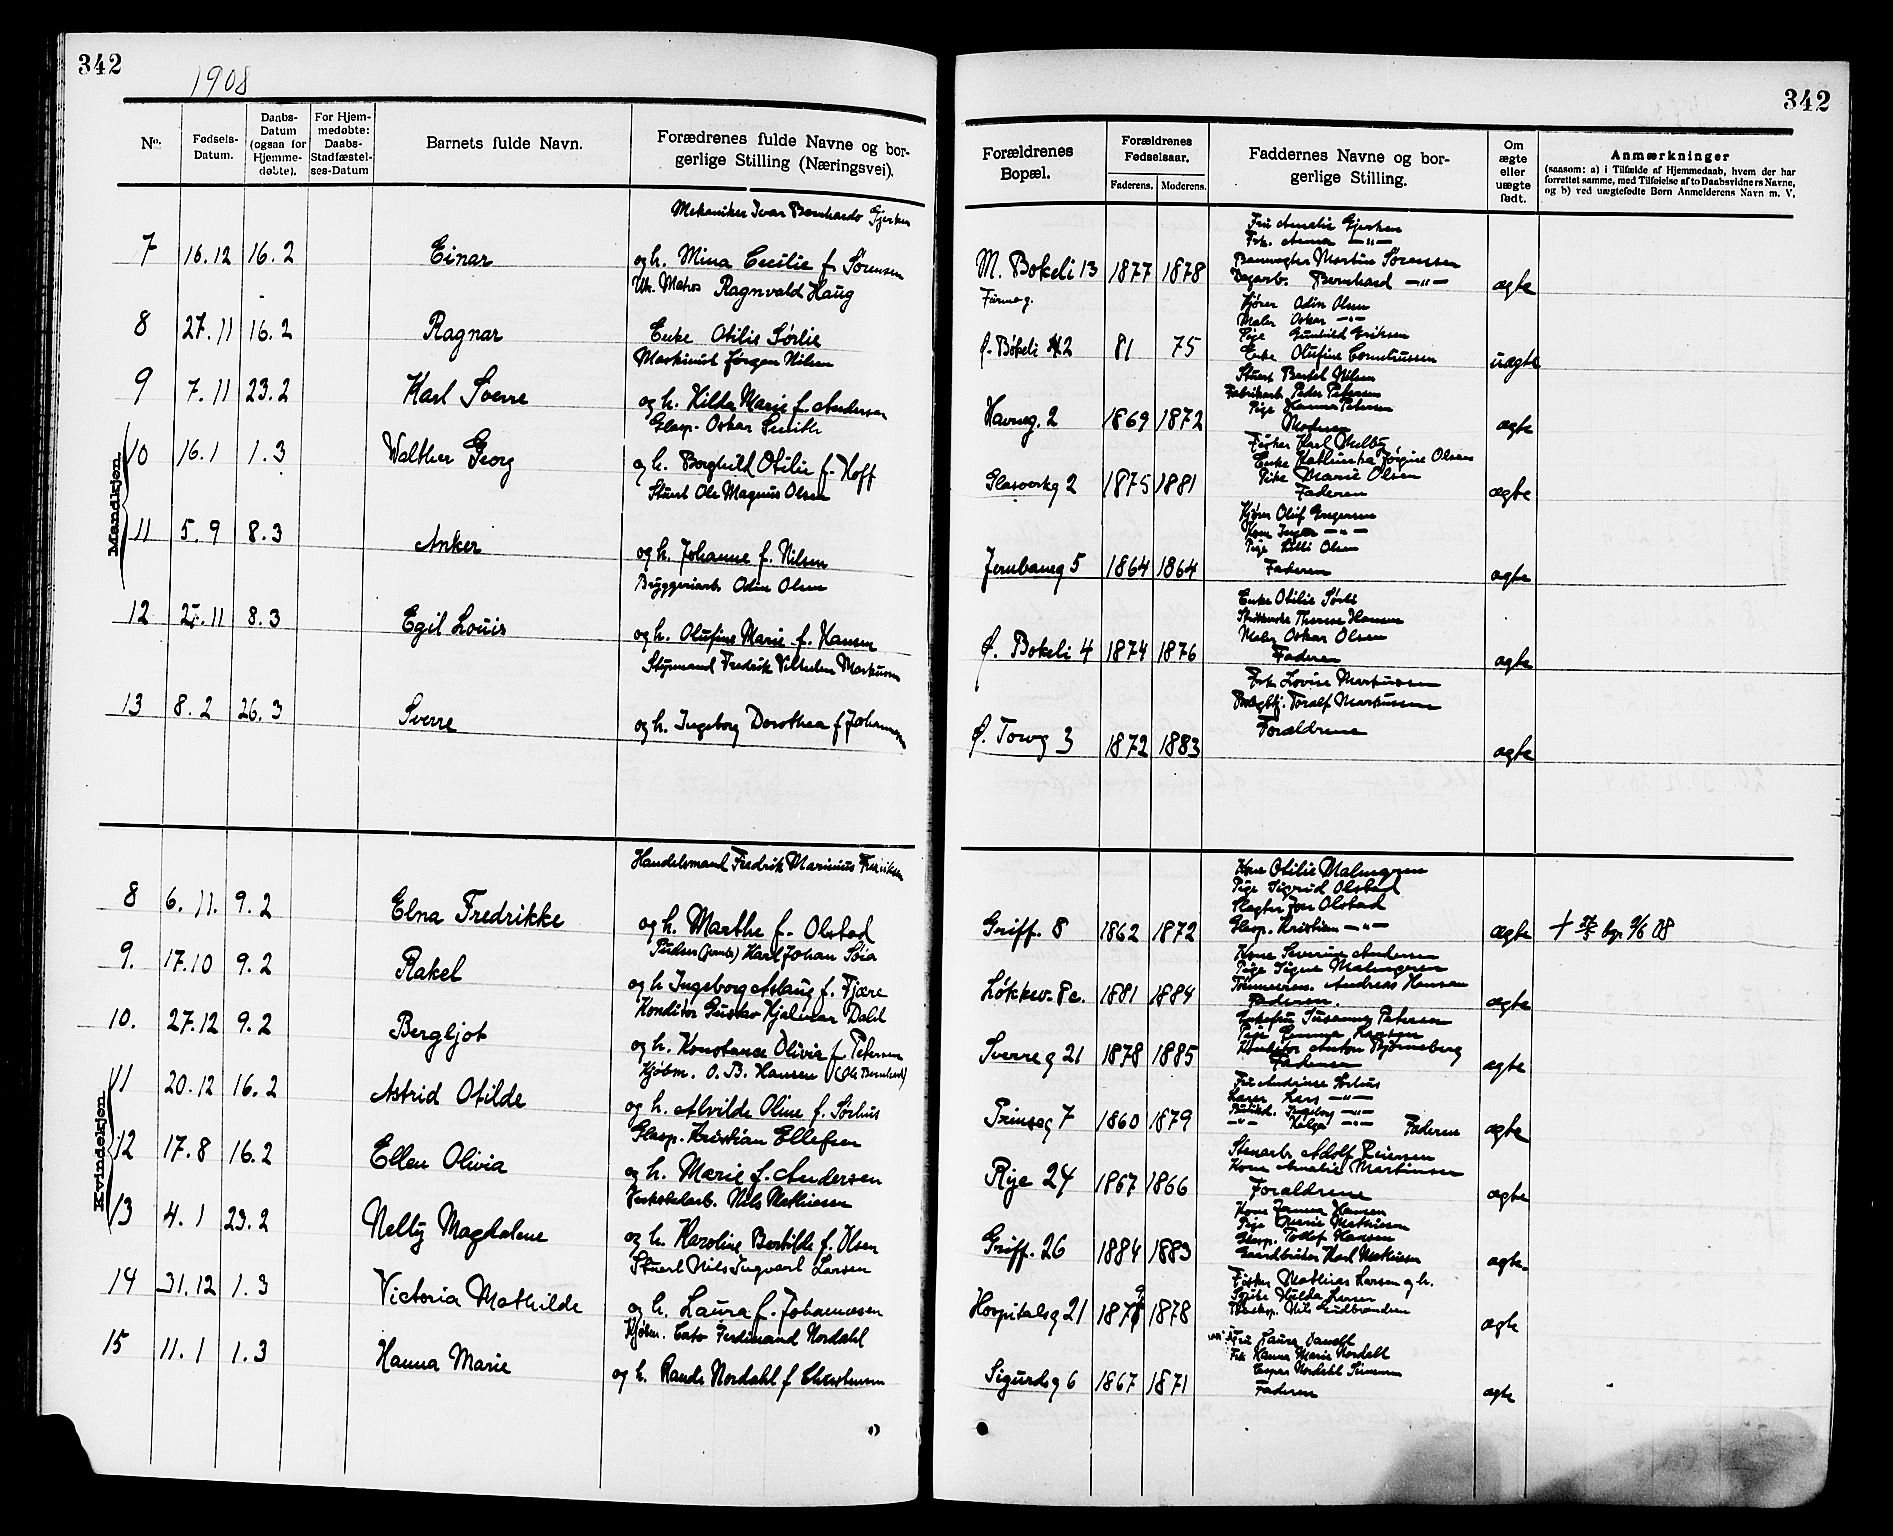 342
1908
No.
Fødsels-
Datum.
Daabs-
Datum
(ogsaa for
Hjemme-
døbte).
For Hjem-
medøbte:
Daabs-
Stadfæstel-
ses-Datum
Barnets fulde Navn.
Forædrenes fulde Navne og bor-
gerlige Stilling (Næringsvei).
Mandkjøn
Mekaniker Ivar Bernhardo Gjerken
7 16.12 16.2 Einar og h. Mina Cecilie f. Sørensen
Uk. Matros Ragnvald Haug
8 27.11 16.2 Ragnar Enke Otilie Sørlie
Maskinist Jørgen Nilsen
9 7.11 23.2 Karl Sverre og h. Hilda Marie f. Andersen
Glasp. Oskar Smith
10 16.1 1.3 Walther Georg og h. Borghild Otilie f. Hoff
Stuert Ole Magnus Olsen
11 5.9 8.3 Anker og h. Johanne f. Nilsen
Bryggeriarb. Odin Olsen
12 27.11 8.3 Egil Louis og h. Olufine Marie f. Hansen
Styrmand Fredrik Vilhelm Markussen
13 8.2 26.3 Sverre og h. Ingeborg Dorothea f. Johannessen
Kvindekjøn
Handelsmand Fredrik Marinius Fredriksen
8 6.11. 9.2 Elna Fredrikke og h. Marthe f. Olstad
Karl Johan Söia
9. 17.10 9.2 Rakel og h. Ingeborg Aslaug f. Fjære
Konditor Gustav Hjalmar Dahl
10. 27.12 9.2 Bergljot og h. Konstance Olivie f. Petersen
Kjøbm. O. B. Hansen (Ole Bernhard)
11 20.12 16.2 Astrid Otilde og h. Alvilde Oline f. Sørhus
Glasp. Kristian Ellefsen
12 17.8 16.2 Ellen Olivia og h. Marie f. Andersen
Verkstedarb. Nils Mathisen
13 4.1 23.2 Nelly Magdalene og h. Karoline Bertilde f. Olsen
Stuert Nils Ingvart Larsen
14 31.12 1.3 Victoria Mathilde og h. Laura f. Johannesen
Kjøbm. Cato Ferdinand Nordahl
15 11.1 1.3 Hanna Marie og h. Randi Nordahl f. Christensen
342
Forældrenes
Bopæl.
Forældrenes
Fødselsaar.
Faderens. Moderens.
Faddernes Navne og bor-
gerlige Stilling.
Om
ægte
eller
uægte
født.
Anmærkninger
(saasom: a) i Tilfælde af Hjemmedaab, hvem der har
forrettet samme, med Tilføielse af to Daabsvidners Navne,
og b) ved uægtefødte Børn Anmelderens Navn m. V.
Fru Amalie Gjerken
Frk. Anna —"—
Banevogter Martin Sørensen
M. Bokeli 13 1877 1878 Dagarb. Bernhard —"— ægte
Farmeg.
Kjører Odin Olsen
Maler Oskar —"—
Pige Gunhild Eriksen
Ø. Bøkeli 42 81 75 Enke Olufine Corneliussen uægte
Stuert Bertel Nilsen
Fabrikarb. Peder Petersen
Pige Hanna Petersen
Havneg. 2 1869 1872 Moderen ægte
Fisker Karl Melby
Enke Kathinka Jørgine Olsen
Pike Marie Olsen
Glasverkg 2 1875 1881 Faderen ægte
Kjører Oluf Gregersen
Kone Inga —"—
Pige Lilli Olsen
Jernbaneg 5 1864 1864 Faderen ægte
Enke Otilie Sørli
Therese Hansen
Maler Oskar Olsen
Ø. Bokeli 4 1874 1876 Faderen ægte
Frk. Lovise Markussen
Toralf Markussen
Forældrene
Ø. Torvg 3 1872 1883 ægte
Kone Otilie Malmgren
Pige Sigrid Olstad
Slagter Jon Olstad
Griff. 8 1862 1872 Glasp. Kristian —"— ægte
Kone Severine Andersen
Pige Signe Malmgren
Tømmerm. Andreas Hansen
Løkkev. 8c. 1881 1884 Faderen. ægte
Susanna Petersen
Pige Emma Larsen
Konditor Anton Bjørneberg
Sverreg 21 1878 1885 Faderen ægte
Fru Andrine Sørhus
Lars —"—
Ingeborg —"—
Prinseg 7 1860 1879 —"— Helga —"— Faderen ægte
Stenarb. Adolf Reiersen
Kone Amalie Martinsen
Rije 24 1867 1866 Forældrene ægte
Kone Hansen
Pige Marie Mathisen
Glasp. Tollef Hansen
Griff. 26 1884 1883 Gaardbruker Karl Mathisen ægte
Fisker Mathias Larsen og h.
Pike Hulda Larsen
Hospitalsg 21 1878 Nils Gudbrandsen ægte
Fru Laura Dandell
Frk Hanna Marie Nordahl
Casper Nordahl Simensen
Sigurdsg 6 1867 1871 Faderen ægte